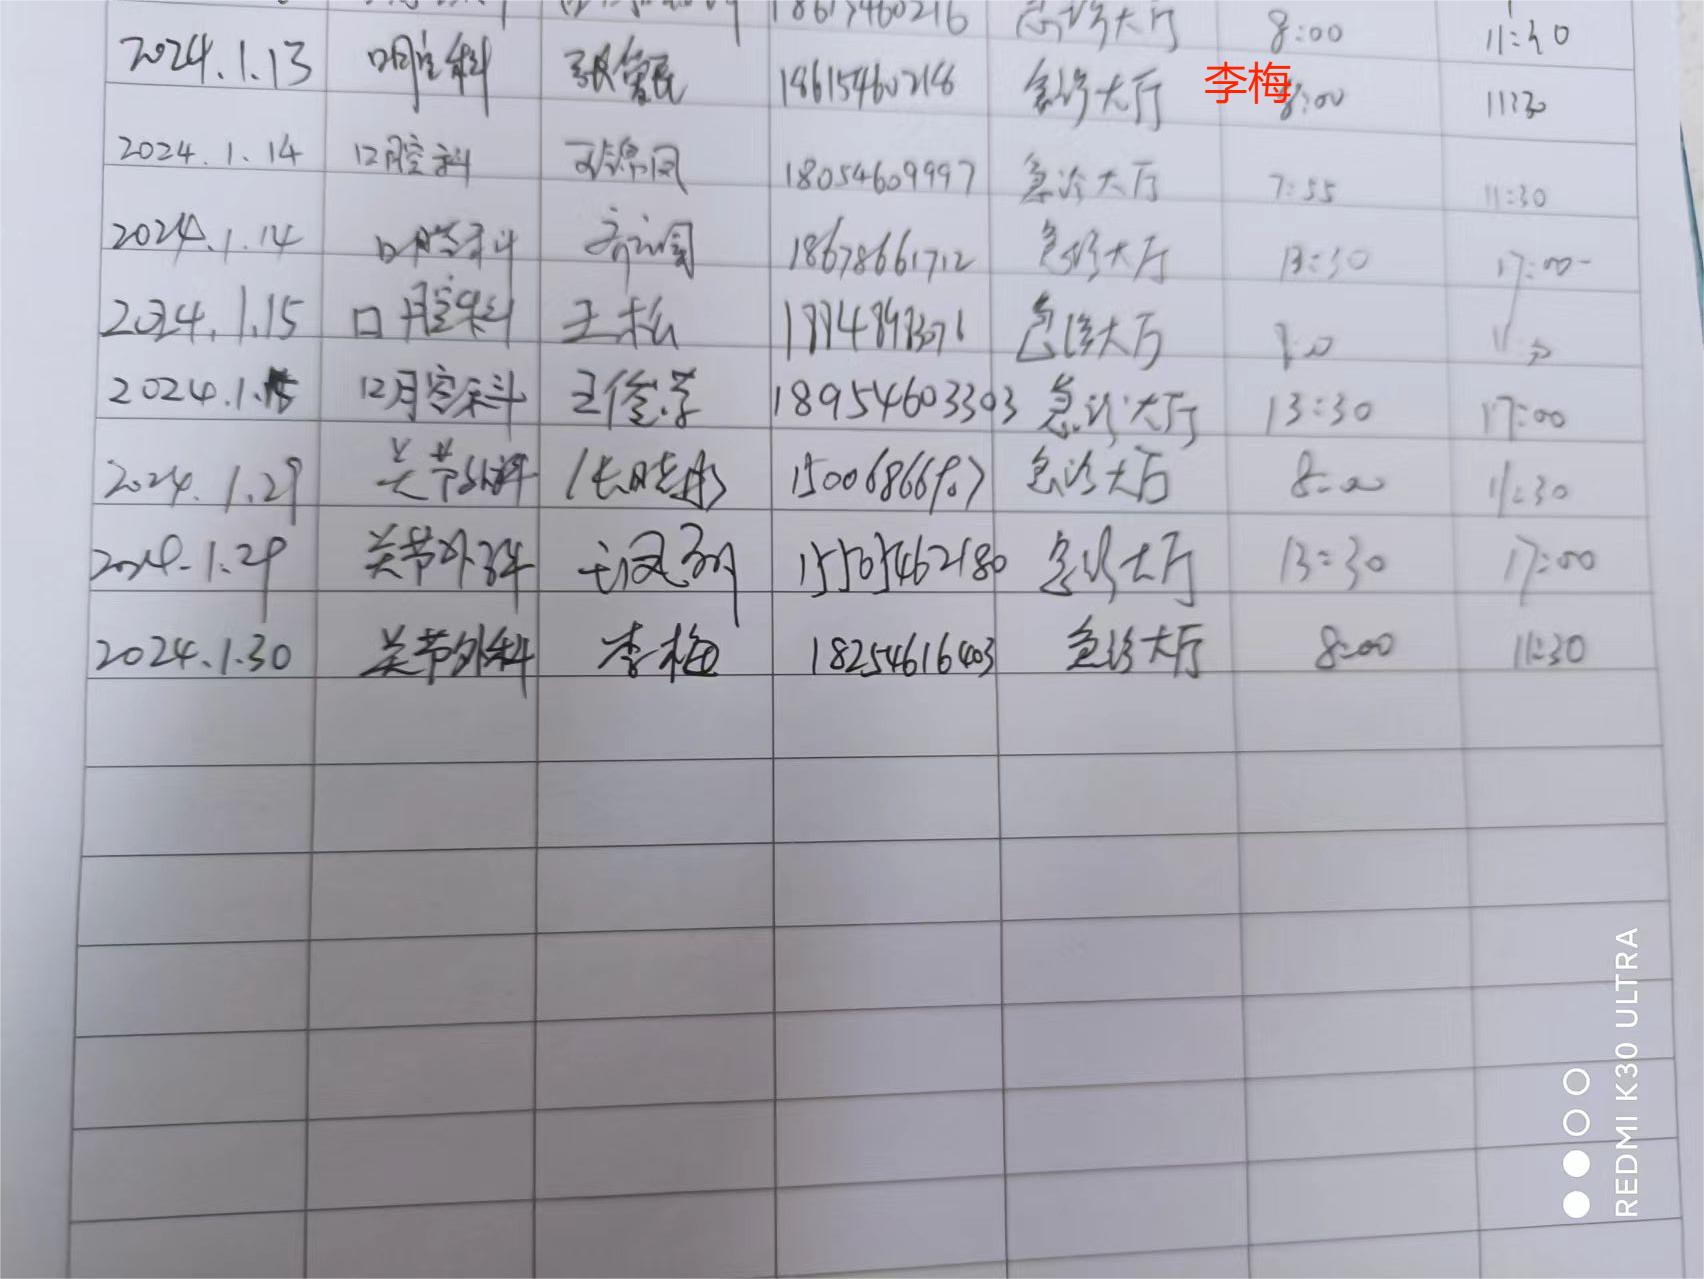 18615460216 急诊大厅 8:00 11:30
2024.1.13 口腔科 18615460216 急诊大厅 李梅 8:00 11:30
2024.1.14 口腔科 18054609997 急诊大厅 7:55 11:30
2024.1.14 口腔科 18678661712 急诊大厅 13:30 17:00
2024.1.15 口腔科 王松 急诊大厅
2024.1.15 口腔科 王俊芳 18954603303 急诊大厅 13:30 17:00
2024.1.29 关节外科 张晓彤 急诊大厅 8:00 11:30
2024.1.29 关节外科 15505462180 急诊大厅 13:30 17:00
2024.1.30 关节外科 李梅 18254616403 急诊大厅 8:00 11:30
REDMI K30 ULTRA